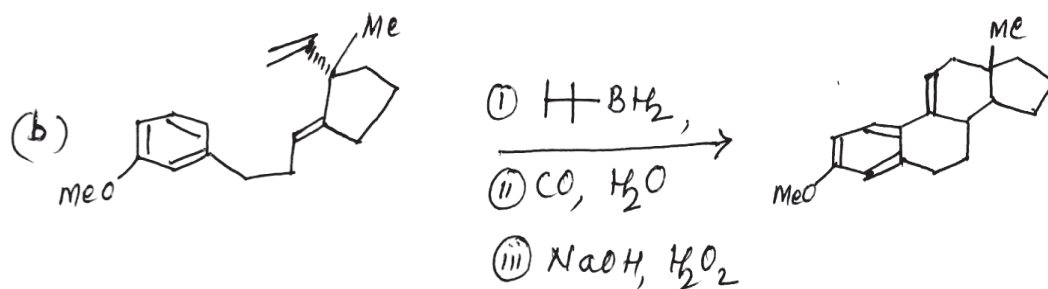 (b)
Me
MeO
① BH₂,
② CO, H₂O
③ NaOH, H₂O₂
Me
MeO